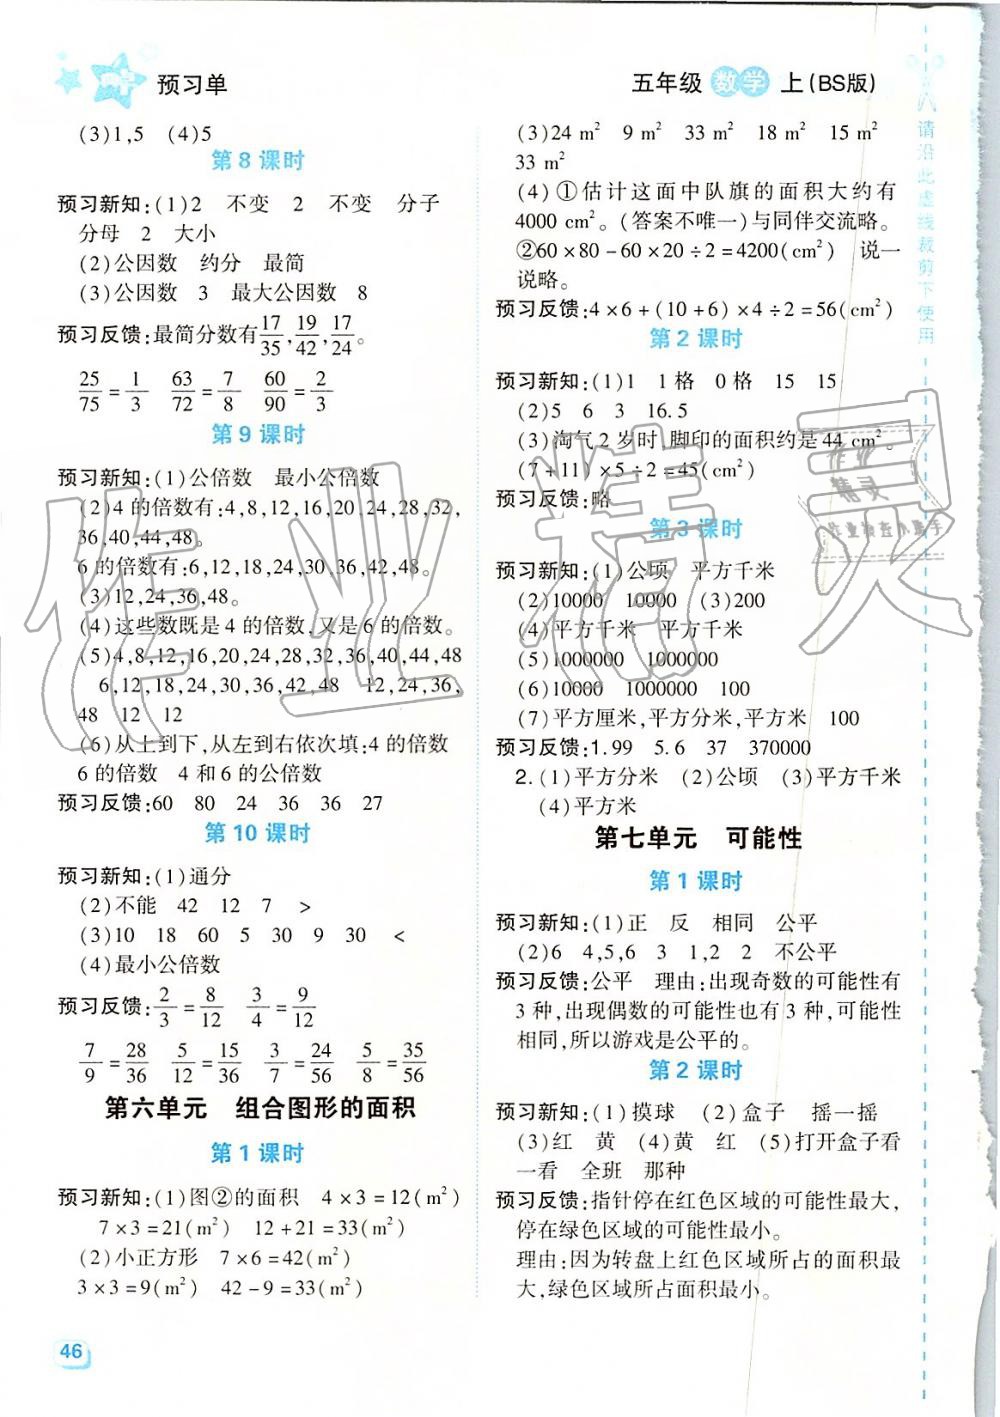 预习单
五年级 数学 上(BS版)
(3)1,5 (4)5
第8课时
预习新知:(1)2 不变 2 不变 分子
分母 2 大小
(2)公因数 约分 最简
(3)公因数 3 最大公因数 8
预习反馈:最简分数有17/35,19/42,17/24。
25/75=1/3 63/72=7/8 60/90=2/3
第9课时
预习新知:(1)公倍数 最小公倍数
(2)4的倍数有:4,8,12,16,20,24,28,32,
36,40,44,48。
6的倍数有:6,12,18,24,30,36,42,48。
(3)12,24,36,48。
(4)这些数既是4的倍数,又是6的倍数。
(5)4,8,12,16,20,24,28,32,36,40,44,48
6,12,18,24,30,36,42,48 12,24,36,
48 12 12
(6)从上到下,从左到右依次填:4的倍数
6的倍数 4和6的公倍数
预习反馈:60 80 24 36 36 27
第10课时
预习新知:(1)通分
(2)不能 42 12 7 >
(3)10 18 60 5 30 9 30 <
(4)最小公倍数
预习反馈:2/3=8/12 3/4=9/12
7/9=28/36 5/12=15/36 3/7=24/56 5/8=35/56
第六单元 组合图形的面积
第1课时
预习新知:(1)图②的面积 4×3=12(m²)
7×3=21(m²) 12+21=33(m²)
(2)小正方形 7×6=42(m²)
3×3=9(m²) 42-9=33(m²)
46
(3)24 m² 9 m² 33 m² 18 m² 15 m²
33 m²
(4)①估计这面中队旗的面积大约有
4000 cm²。(答案不唯一)与同伴交流略。
②60×80-60×20÷2=4200(cm²) 说一
说略。
预习反馈:4×6+(10+6)×4÷2=56(cm²)
第2课时
预习新知:(1)1 1格 0格 15 15
(2)5 6 3 16.5
(3)淘气2岁时,脚印的面积约是44 cm²。
(7+11)×5÷2=45(cm²)
预习反馈:略
第3课时
预习新知:(1)公顷 平方千米
(2)10000 10000 (3)200
(4)平方千米 平方千米
(5)1000000 1000000
(6)10000 1000000 100
(7)平方厘米,平方分米,平方米 100
预习反馈:1.99 5.6 37 370000
2.(1)平方分米 (2)公顷 (3)平方千米
(4)平方米
第七单元 可能性
第1课时
预习新知:(1)正 反 相同 公平
(2)6 4,5,6 3 1,2 2 不公平
预习反馈:公平 理由:出现奇数的可能性有
3种,出现偶数的可能性也有3种,可能性
相同,所以游戏是公平的。
第2课时
预习新知:(1)摸球 (2)盒子 摇一摇
(3)红 黄 (4)黄 红 (5)打开盒子看
一看 全班 那种
预习反馈:指针停在红色区域的可能性最大,
停在绿色区域的可能性最小。
理由:因为转盘上红色区域所占的面积最
大,绿色区域所占面积最小。
请沿此虚线裁剪下使用
作业精灵
作业精灵
作业检查小助手